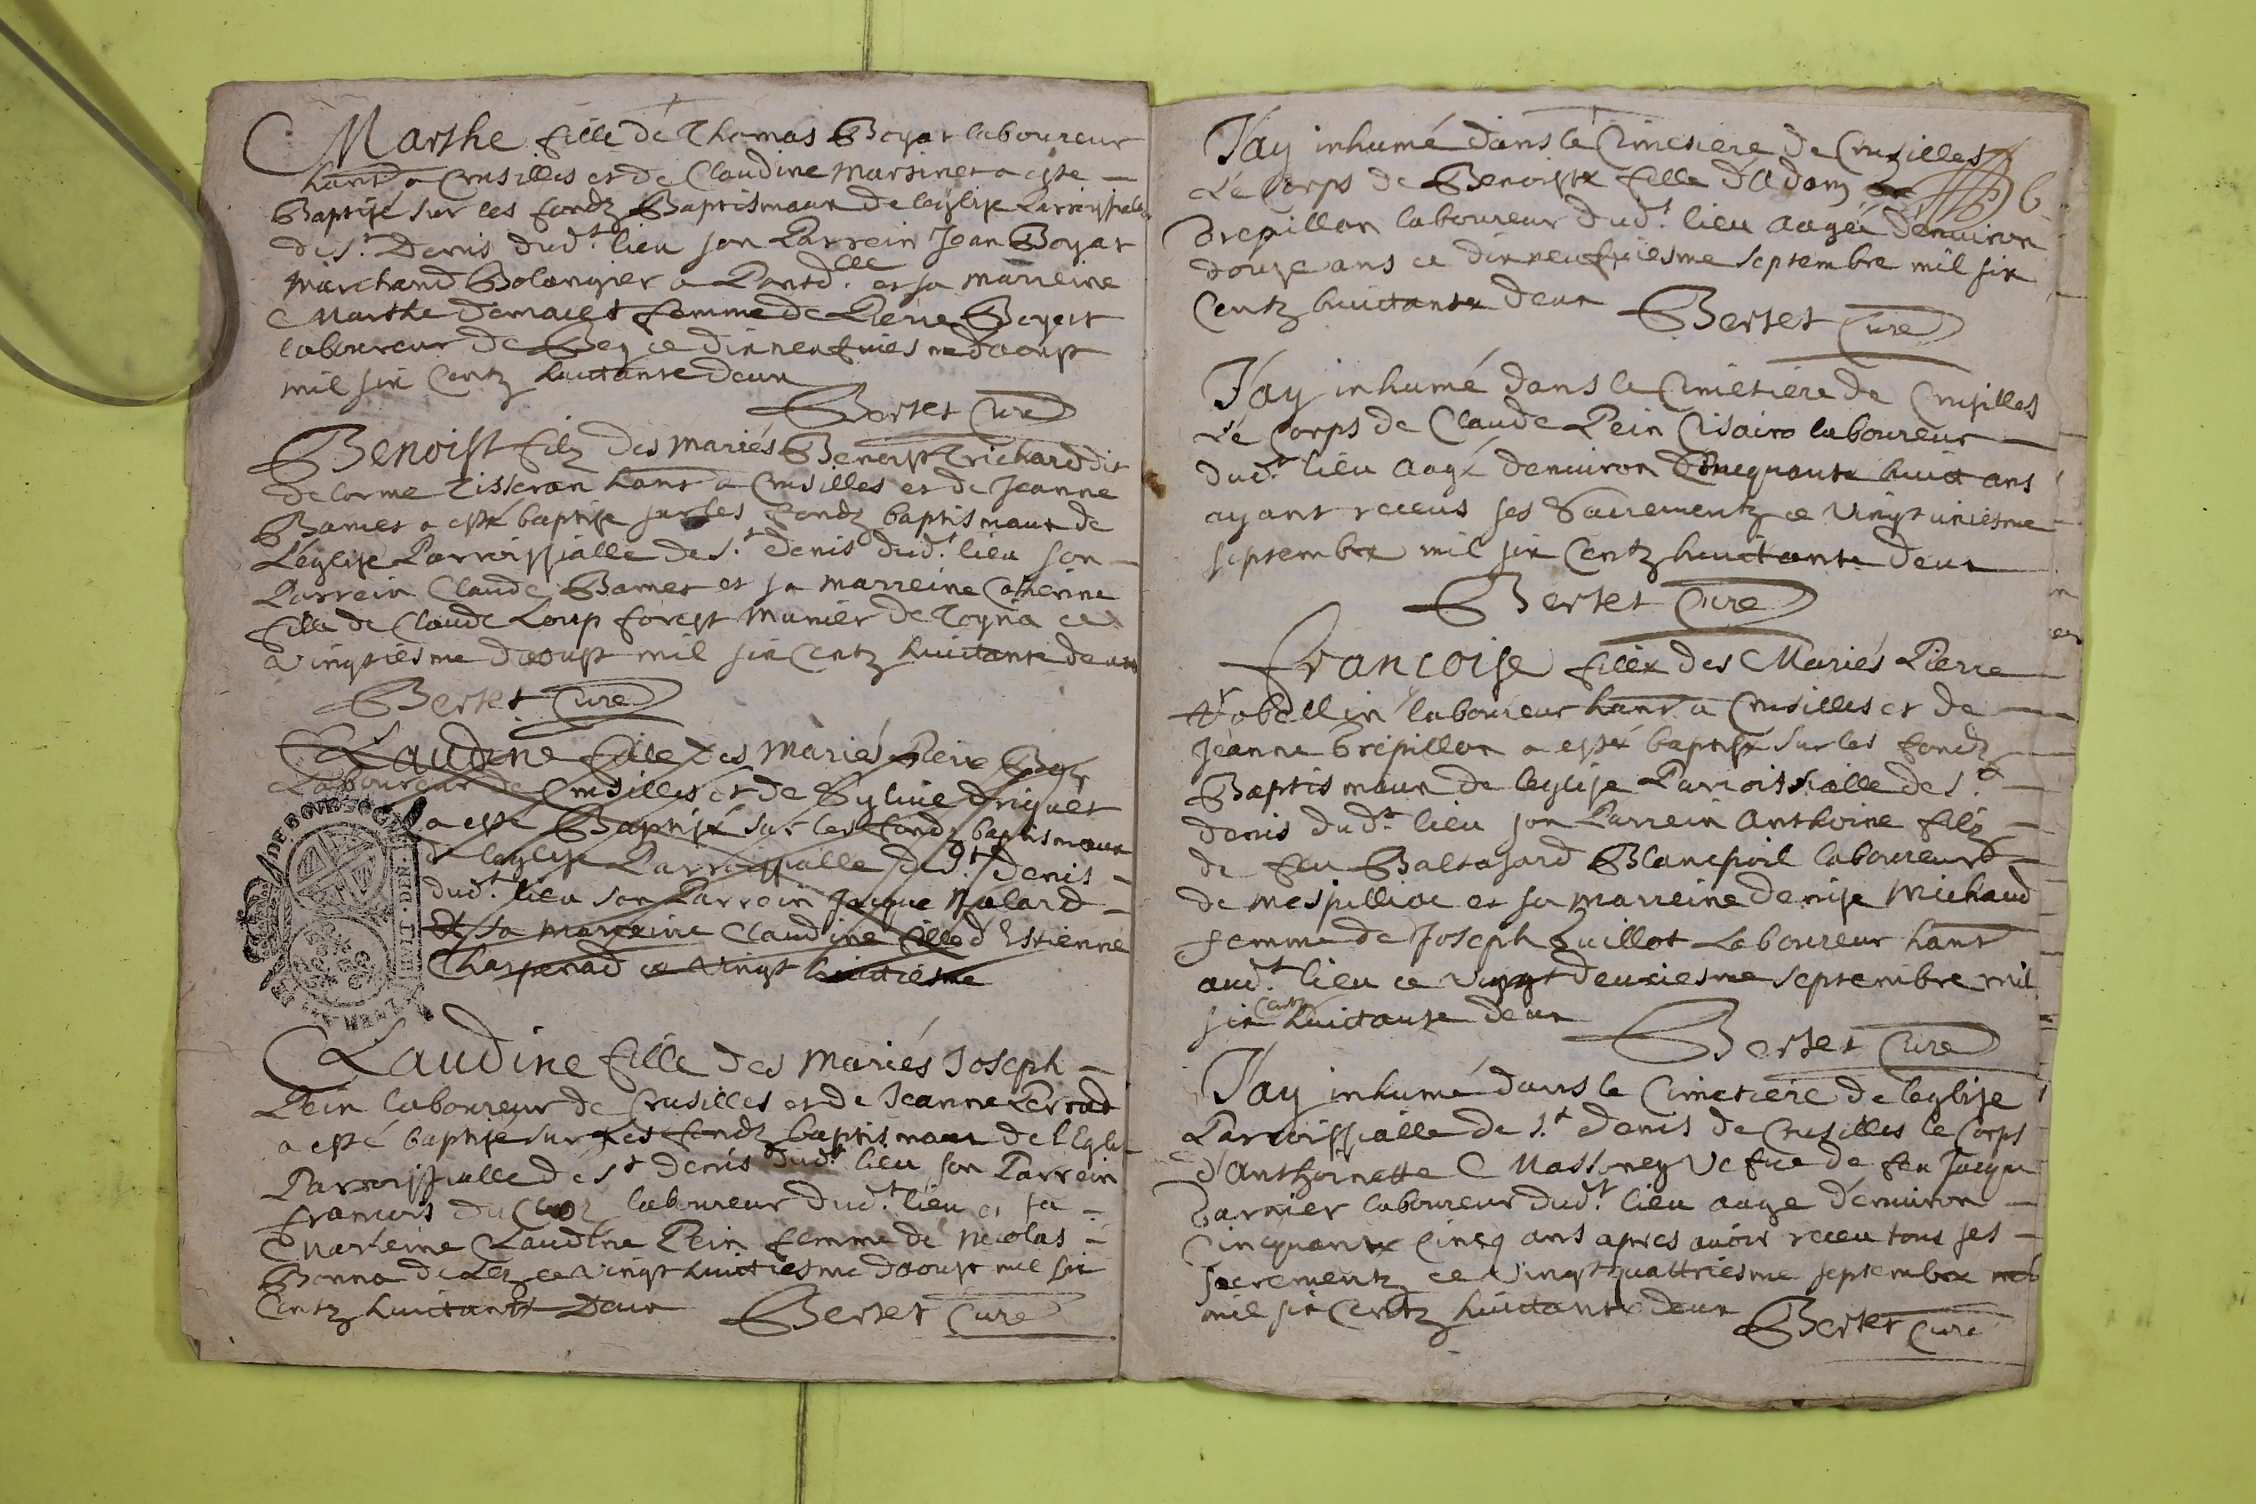 Marthe fille de Thomas Boyat laboureur
hant a Crusilles et de Claudine Martinet a este
Baptisé sur les fondz Baptismaux de leglise Parroissialle
de St. Denis dudt. lieu son Parrein Jean Boyat
Marchand Bolangier a Pontd. et sa marreine
Marthe femme de Pierre Boyert
laboureur de Bey ce dixneufviesme daoust
mil six Centz huictante deux
Bertet Curé
Benoist filz des mariés Benoist trichard dit
delorme Tisseran hant a Crusilles et de Jeanne
Bamet a esté baptisé sur les fondz baptismaux de
L'église Parroissialle de St. denis dudt. lieu son
Parrein Claude Bamet et sa marreine Catherine
fille de Claude Loup forest Munier de Toyria ce
Vingtiesme daoust mil six Centz huictante deux
Bertet Curé
Claudine fille des mariés Pierre
Laboureur de Crusilles et de Sylvie Driguet
a esté Baptisé sur les fondz baptismaux
de leglise Parroissialle de St. denis
dudt. lieu son Parrein Jacque Nalard
et sa marreine Claudine fille d'Estienne
Charpenad ce vingt huictiesme
Claudine fille des mariés Joseph
Pein laboureur de Crusilles et de Jeanne Perrad
a esté baptisé sur les fondz baptismaux de l'Eglise
Parroissialle de St denis dudt. lieu son Parrein
francois du laboureur dudt. lieu et sa
Marreine Claudine Pein femme de Nicolas
Bonna de Lez ce vingt huictiesme daoust mil six
Centz huictante Deux Bertet Curé
J'ay inhumé dans le Cimetiere de Crusilles
Le Corps de Benoiste fille d'Adam 6
Brepillon laboureur dudt. lieu aagée d'environ
douze ans ce dixneufviesme septembre mil six
Centz huictante deux Bertet Curé
J'ay inhumé dans le Cimetiere de Crusilles
Le Corps de Claude Pein laboureur
dudt. lieu aagé denviron Cincquante huict ans
ayant receus ses Sacrementz ce vingt uniesme
septembre mil six Centz huictante deux
Bertet Curé
Francoise fille des Mariés Pierre
Vobellin laboureur hant a Crusilles et de
Jeanne brepillon a esté baptisé sur les fondz
Baptismaux de leglise Parroissialle de St.
denis dudt. lieu son Parrein Anthoine filz
de feu Baltasard Blancpoil laboureur
de mespilliat et sa marreine denise Michaud
femme de Joseph Guillot Laboureur hant
audt. lieu ce vingt deuxiesme septembre mil
six Centz huictante deux
Bertet Curé
J'ay inhumé dans le Cimetiere de leglise
Parroissialle de St. denis de Crusilles le Corps
d'Anthoinette Massoney Vefve de feu Jacque
Darnier laboureur dudt. lieu aagé d'environ
Cincquante Cincq ans apres avoir receu tous ses
sacrementz ce vingtquattriesme septembre mil
mil six Centz huictante deux Bertet Curé